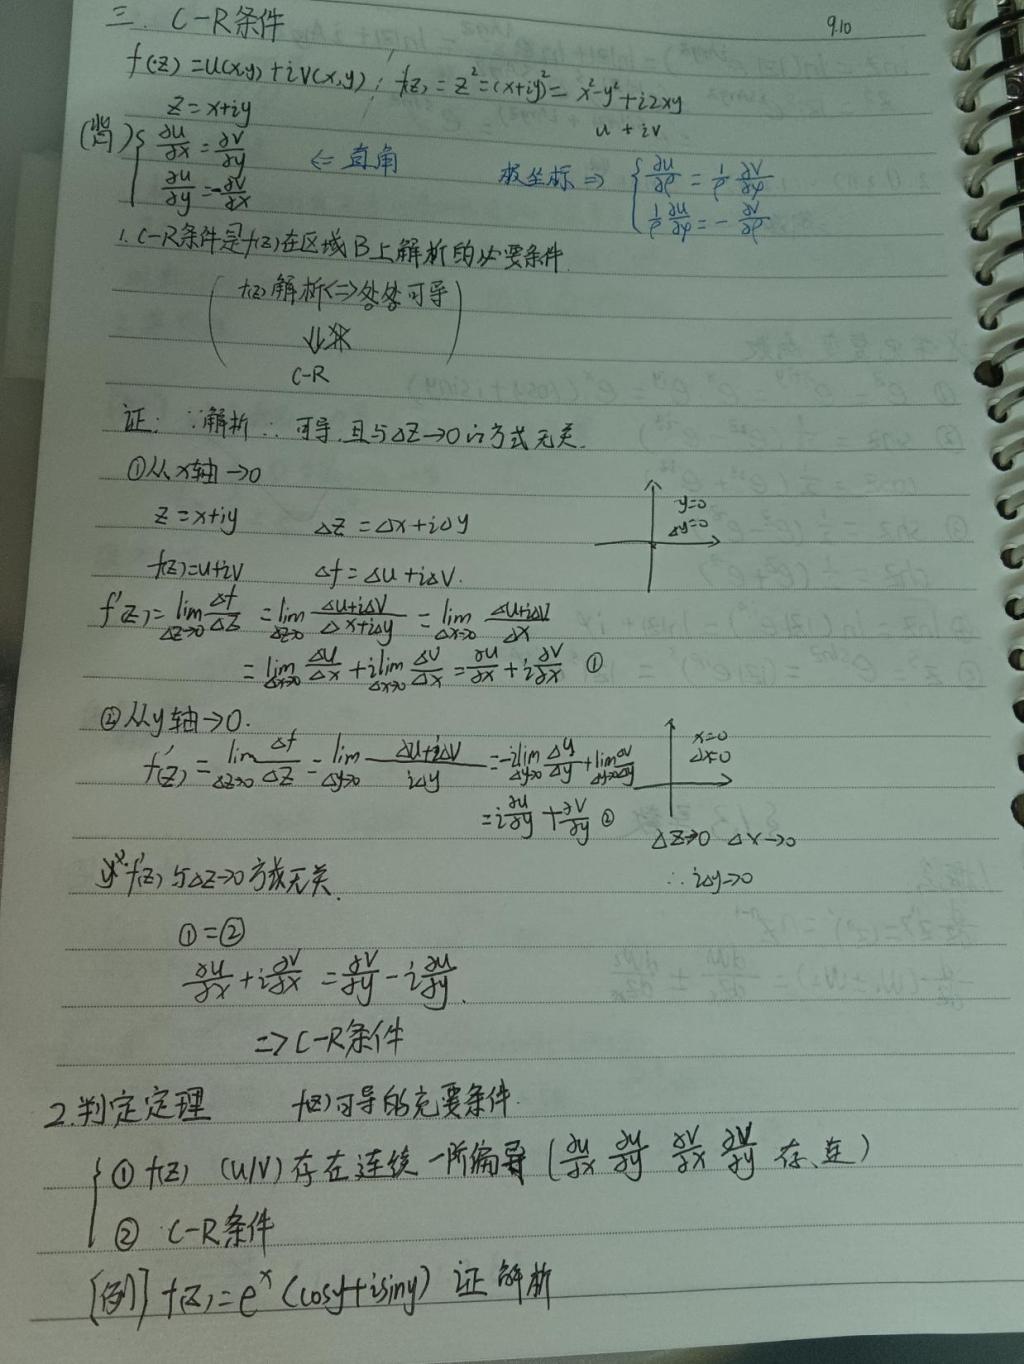 三. C-R条件 9.10
f(z)=u(x,y)+iv(x,y); f(z)=z²=(x+iy)²=x²-y²+i2xy
z=x+iy u+iv
(背) { ∂u/∂x=∂v/∂y <= 直角 极坐标 => { ∂u/∂ρ=1/ρ ∂v/∂φ
∂u/∂y=-∂v/∂x 1/ρ ∂u/∂φ=-∂v/∂ρ
1. C-R条件是f(z)在区域B上解析的必要条件.
(f(z)解析<=>处处可导)
⇓
C-R
证: ∵解析∴可导,且与Δz→0的方式无关.
①从x轴→0
z=x+iy Δz=Δx+iΔy y=0
Δy=0
f(z)=u+iv Δf=Δu+iΔv.
f'(z)=lim Δz→0 Δf/Δz =lim Δz→0 (Δu+iΔv)/(Δx+iΔy) =lim Δx→0 (Δu+iΔv)/Δx
=lim Δx→0 Δu/Δx + i lim Δx→0 Δv/Δx =∂u/∂x+i∂v/∂x ①
②从y轴→0. x=0
Δx=0
f'(z)=lim Δz→0 Δf/Δz =lim Δy→0 (Δu+iΔv)/(iΔy) =-i lim Δy→0 Δy/Δy + lim Δy→0 Δv/Δy
=i∂u/∂y+∂v/∂y ②
Δz→0 Δx→0
f'(z)与Δz→0方式无关. ∴iΔy→0
①=②
∂u/∂x+i∂v/∂x=∂v/∂y-i∂u/∂y.
=>C-R条件
2.判定定理 f(z)可导的充要条件.
{ ① f(z) (u/v)存在连续一阶偏导(∂u/∂x ∂u/∂y ∂v/∂x ∂v/∂y 存、连)
② C-R条件
[例] f(z)=e^x(cosy+isiny) 证解析